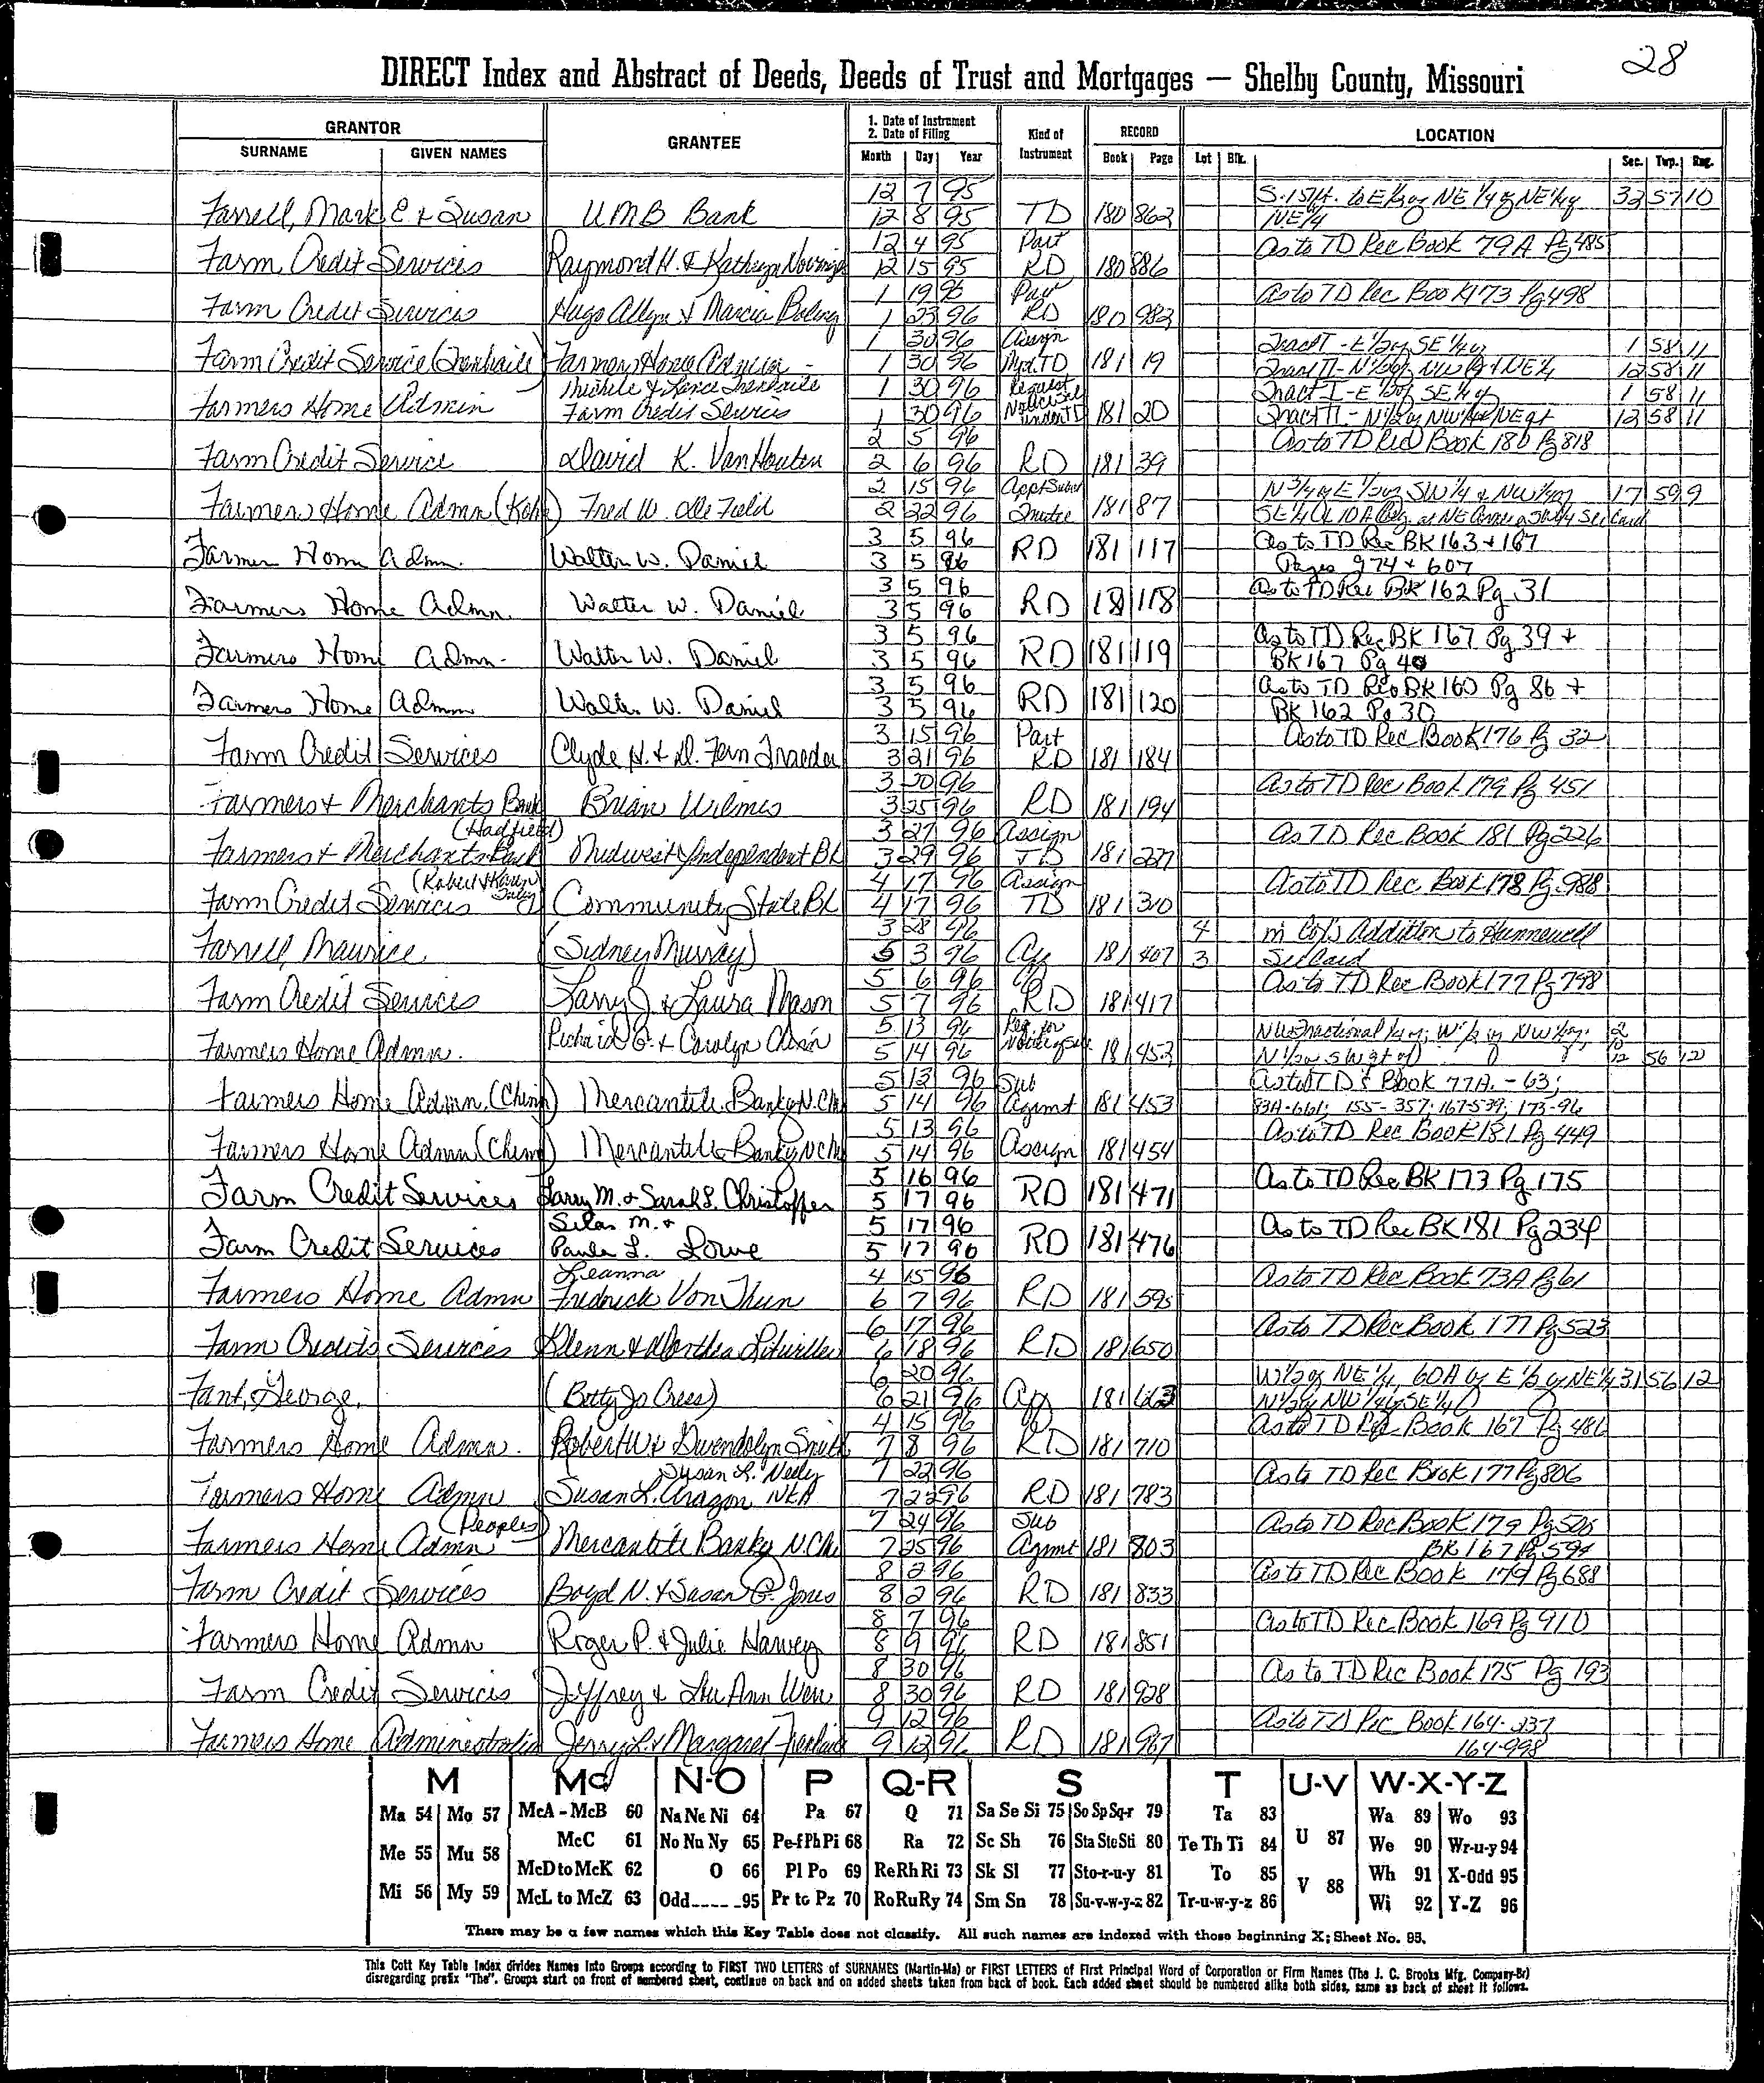 28
DIRECT Index and Abstract of Deeds, Deeds of Trust and Mortgages — Shelby County, Missouri
GRANTOR GRANTEE 1. Date of Instrument 2. Date of Filing Kind of Instrument RECORD LOCATION
SURNAME GIVEN NAMES Month Day Year Book Page Lot Blk. Sec. Twp. Rng.
12 7 95 S. 15 ft. to E 1/2 of NE 1/4 of NE 1/4 of 32 57 10
Farrell, Mark E & Susan UMB Bank 12 8 95 TD 180 862 NE 1/4
12 4 95 Part As to TD Rec Book 79A Pg 485
Farm Credit Services Raymond H. & Kathryn 12 15 95 RD 180 886
1 19 96 Part As to TD Rec Book 173 Pg 498
Farm Credit Services Hugo Allyn & Marcia 1 23 96 RD 180 982
1 30 96 Assign Tract I - E 1/2 of SE 1/4 of 1 58 11
Farm Credit Service Farmers Home Admin 1 30 96 TD 181 19 Tract II - N 1/2 of NW 1/4 & NE 1/4 12 58 11
1 30 96 Request Tract I - E 1/2 of SE 1/4 of 1 58 11
Farmers Home Admin Farm Credit Services 1 30 96 181 20 Tract II - N 1/2 of NW 1/4 12 58 11
2 5 96 As to TD Rec Book 180 Pg 818
Farm Credit Service David K. VanHouten 2 6 96 RD 181 39
2 15 96 N 3/4 of E 1/2 of SW 1/4 & NW 1/4 of 17 59 9
Farmers Home Admn Fred W. 2 22 96 Trustee 181 87
3 5 96 As to TD Rec BK 163 & 167
Farmer Home Admn. Walter W. Daniel 3 5 96 RD 181 117 Pages 974 & 607
3 5 96 As to TD Rec BK 162 Pg 31
Farmers Home Admn. Walter W. Daniel 3 5 96 RD 181 118
3 5 96 As to TD Rec BK 167 Pg 39 +
Farmers Home Admn. Walter W. Daniel 3 5 96 RD 181 119 BK 167 Pg 40
3 5 96 As to TD Rec BK Pg 86 +
Farmers Home Admn Walter W. Daniel 3 5 96 RD 181 120 BK 162 Pg 30
3 15 96 Part As to TD Rec Book 176 Pg 32
Farm Credit Services Clyde H. & D. Fern 3 21 96 RD 181 184
3 20 96 As to TD Rec Book 179 Pg 451
Farmers & Merchants Bank Brian Wilmes 3 25 96 RD 181 194
(Hadfield) 3 27 96 Assign As TD Rec Book 181 Pg 226
Farmers & Merchants Bank Midwest Independent BK 3 29 96 TD 181 227
4 17 96 Assign As to TD Rec Book 178 Pg 988
Farm Credit Services Community State BK 4 17 96 TD 181 310
3 28 96 4 in Addition to Hunnewell
Farrell, Maurice (Sidney Murray) 5 3 96 181 407 3
5 6 96 As to TD Rec Book 177 Pg 798
Farm Credit Services Larry J. & Laura Mason 5 7 96 RD 181 417
5 13 96 Req. for NW Fractional 1/4 of; W 1/2 of NW 1/4 of;
Farmers Home Admn. Richard & Carolyn 5 14 96 181 452 56 12
5 13 96 Sub As to TD's Book 77A - 63;
Farmers Home Admn. Mercantile Bank of N.C. 5 14 96 Agrmt 181 453 83A-661; 155-357; 167-539; 173-96
5 13 96 As to TD Rec Book 181 Pg 449
Farmers Home Admn Mercantile Bank of N.C. 5 14 96 Assign 181 454
5 16 96 As to TD Rec BK 173 Pg 175
Farm Credit Services Larry M. & Sarah S. Christoffer 5 17 96 RD 181 471
Silas M. & 5 17 96 As to TD Rec BK 181 Pg 234
Farm Credit Services Paula L. Lowe 5 17 96 RD 181 476
Leanna 4 15 96 As to TD Rec Book 73A Pg 61
Farmers Home Admn Fredrick Von Thun 6 7 96 RD 181 595
6 17 96 As to TD Rec Book 177 Pg 523
Farm Credits Services 6 18 96 RD 181 650
6 20 96 W 1/2 of NE 1/4, 60A of E 1/2 of NE 1/4 31 56 12
Fant, George (Betty Jo Cress) 6 21 96 181 663 N 1/2 of NW 1/4 of SE 1/4
4 15 96 As to TD Rec Book 167 Pg 486
Farmers Home Admn. Robert W & Gwendolyn Smith 7 8 96 RD 181 710
Susan L. Neely 7 22 96 As to TD Rec Book 177 Pg 806
Farmers Home Admn Susan L. Aragon NKA 7 22 96 RD 181 783
(Peoples) 7 24 96 Sub As to TD Rec Book 179 Pg 505
Farmers Home Admn Mercantile Bank of N.C. 7 25 96 Agrmt 181 803 BK 167 Pg 594
8 2 96 As to TD Rec Book 179 Pg 688
Farm Credit Services Boyd N. & Susan G. Jones 8 2 96 RD 181 833
8 7 96 As to TD Rec Book 169 Pg 910
Farmers Home Admn Roger P. & Julie Harvey 8 9 96 RD 181 851
8 30 96 As to TD Rec Book 175 Pg 193
Farm Credit Services Jeffrey & Lou Ann 8 30 96 RD 181 928
9 12 96 As to TD Rec Book 164-237
Farmers Home Administration Jerry L. & Margaret 9 13 96 RD 181 967 164-998
M Mc N-O P Q-R S T U-V W-X-Y-Z
Ma 54 Mo 57 McA - McB 60 Na Ne Ni 64 Pa 67 Q 71 Sa Se Si 75 So Sp Sq-r 79 Ta 83 U 87 Wa 89 Wo 93
Me 55 Mu 58 McC 61 No Nu Ny 65 Pe-f Ph Pi 68 Ra 72 Sc Sh 76 Sta Ste Sti 80 Te Th Ti 84 We 90 Wr-u-y 94
McD to McK 62 O 66 Pl Po 69 Re Rh Ri 73 Sk Sl 77 Sto-r-u-y 81 To 85 V 88 Wh 91 X-Odd 95
Mi 56 My 59 McL to McZ 63 Odd 95 Pr to Pz 70 Ro Ru Ry 74 Sm Sn 78 Su-v-w-y-z 82 Tr-u-w-y-z 86 Wi 92 Y-Z 96
There may be a few names which this Key Table does not classify. All such names are indexed with those beginning X; Sheet No. 95.
This Cott Key Table Index divides Names into Groups according to FIRST TWO LETTERS of SURNAMES (Martin-Ma) or FIRST LETTERS of First Principal Word of Corporation or Firm Names (The J. C. Brooks Mfg. Company-Br)
disregarding prefix "The". Groups start on front of numbered sheet, continue on back and on added sheets taken from back of book. Each added sheet should be numbered alike both sides, same as back of sheet it follows.